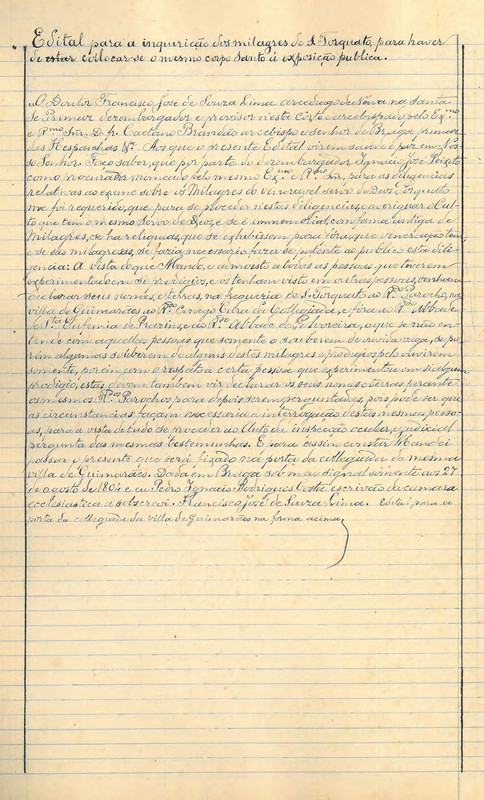 Edital para a inquirição dos milagres de S. Torquato, para haver
de estar collocar-se o mesmo corpo Santo à exposição publica.
O Doutor Francisco José de Souza Lima arcediago de Neiva na santa
Sé Primaz dezembargador e provisor nesta côrte e arcebispado pelo Exmo
e Rmo Snr. D. fr. Caetano Brandão arcebispo e senhor de Braga, primaz
das Hespanhas &ª. Aos que o presente Edital virem saude e paz em Nos-
so Senhor. Faço saber, que por parte do dezembargador Ignacio José Peixoto
como procurador, nomeado pelo mesmo Exmo e Rmo Snr, para as diligencias
relativas ao exame sobre os Milagres do veneravel servo de Deos, Torquato
me foi requerido, que para se proceder nestas diligencias, e averiguar o cul-
to que tem o mesmo Servo de Deos, e se é immemorial com fama antiga de
Milagres, se ha reliquias, que se exhibissem para vêr a que veneração tem
e se são milagrosas, se fazia necessario fazer-se patente ao publico esta dili-
gencia: A vista do que Mando, e admoesto a todas as pessoas que tiverem
experimentado em si prodigios, os tenham visto em outras pessoas, venham
declarar seus nomes, e terras, na freguezia de S. Torquato ao Rdo Parocho, na
villa de Guimarães ao Rdo Conego Cura da Collegiada, e fóra ao Rdo Abbade
de Sta Eufemia de Prazins, e ao Rdo Abbade de Polvoreira, o que se não en-
tende com aquellas pessoas que somente o souberem de ouvida vaga, se po-
rém algumas souberem de alguns destes milagres e prodigios pelo ouvirem
somente, porém com o respeito a certa pessoa que experimentou em si algum
prodigio, estas devem tambem vir declarar os seus nomes e terras perante
os mesmos Rdos Parochos para depois serem perguntadas, pois pode ser que
as circunstancias façam necessaria a interrogação destas mesmas pesso-
as, para á vista de tudo se proceder ao Auto da inspecção ocular, e judicial
pergunta das mesmas testemunhas. E para assim constar Mandei
passar o presente que será fixado na porta da collegiada da mesma
villa de Guimarães. Dada em Braga sob meu signal somente aos 27
de agosto de 1804 e eu Pedro Ignacio Rodrigues Costa escrivão da camara
ecclesiastica a subscrevi. Francisco José de Souza Lima. Edital para a
porta da collegiada da villa de Guimarães na forma acima